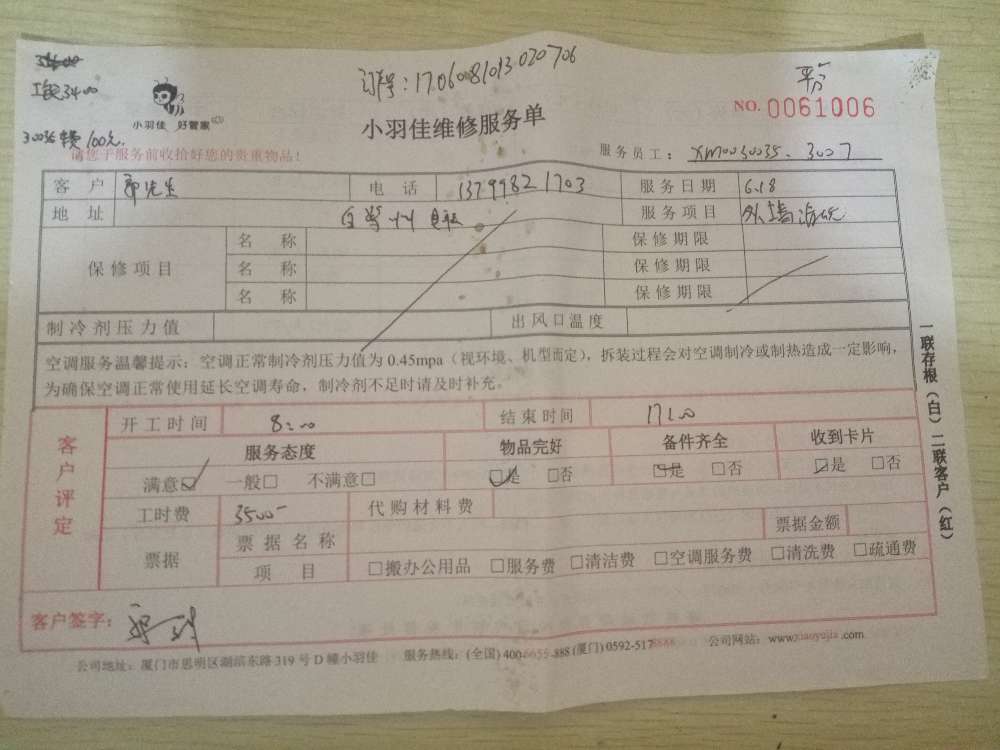 订单号:1706081013030706
工程3400
平分
小羽佳 好管家
NO. 0061006
小羽佳维修服务单
100元
请您于服务前收拾好您的贵重物品!
服务员工: XM0030035、3007
客户 郭先生 电话 13799821703 服务日期 6.18
地址 服务项目 外墙清洗
保修项目 名称 保修期限
名称 保修期限
名称 保修期限
制冷剂压力值 出风口温度
空调服务温馨提示:空调正常制冷剂压力值为0.45mpa(视环境、机型而定),拆装过程会对空调制冷或制热造成一定影响,
为确保空调正常使用延长空调寿命,制冷剂不足时请及时补充。
客户评定
开工时间 8:00 结束时间 17:00
服务态度 物品完好 备件齐全 收到卡片
满意☑ 一般□ 不满意□ ☑是 □否 ☑是 □否 ☑是 □否
工时费 3500- 代购材料费
票据 票据名称 票据金额
项目 □搬办公用品 □服务费 □清洁费 □空调服务费 □清洗费 □疏通费
客户签字:
公司地址:厦门市思明区湖滨东路319号D幢小羽佳 服务热线:(全国)400-6655-888(厦门)0592-5176666 公司网站:www.xiaoyujia.com
一联存根(白)二联客户(红)